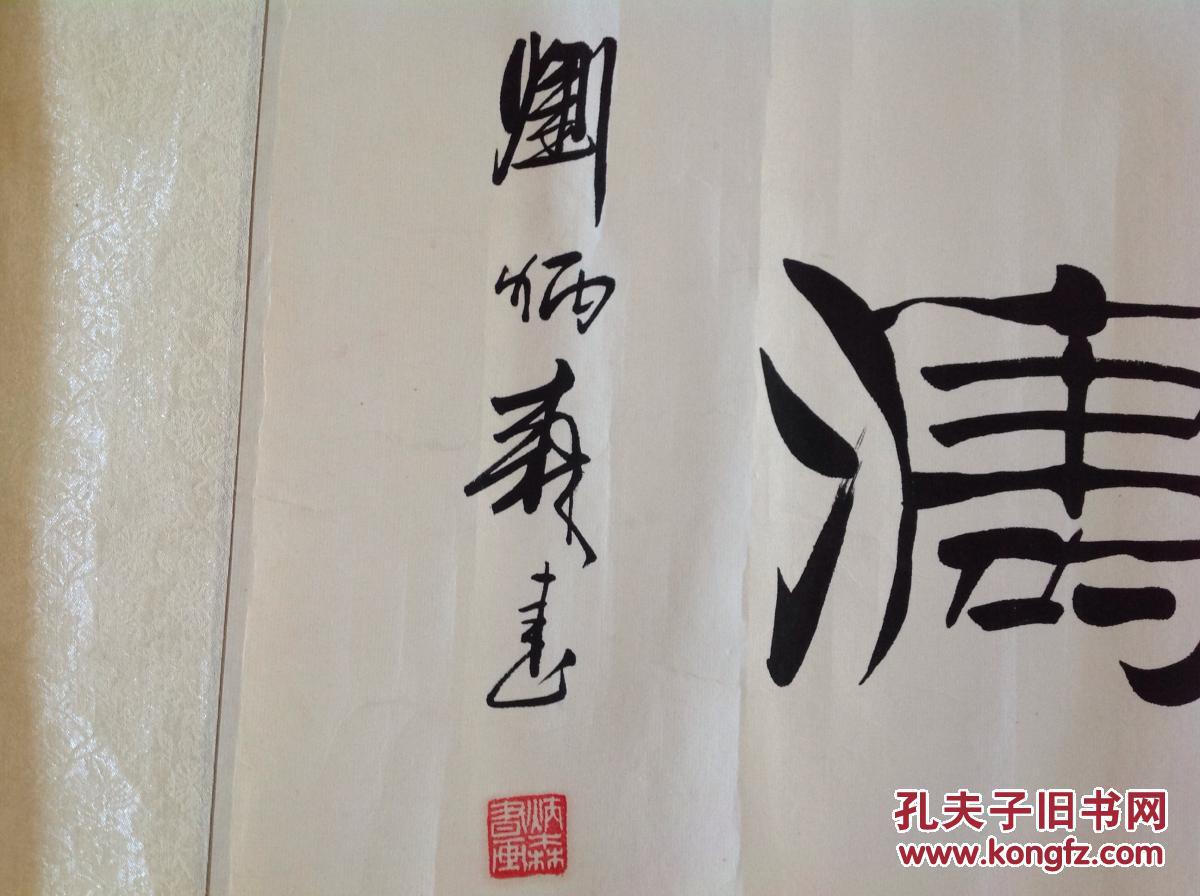 濤
劉炳森書
炳森書画
孔夫子旧书网
www.kongfz.com